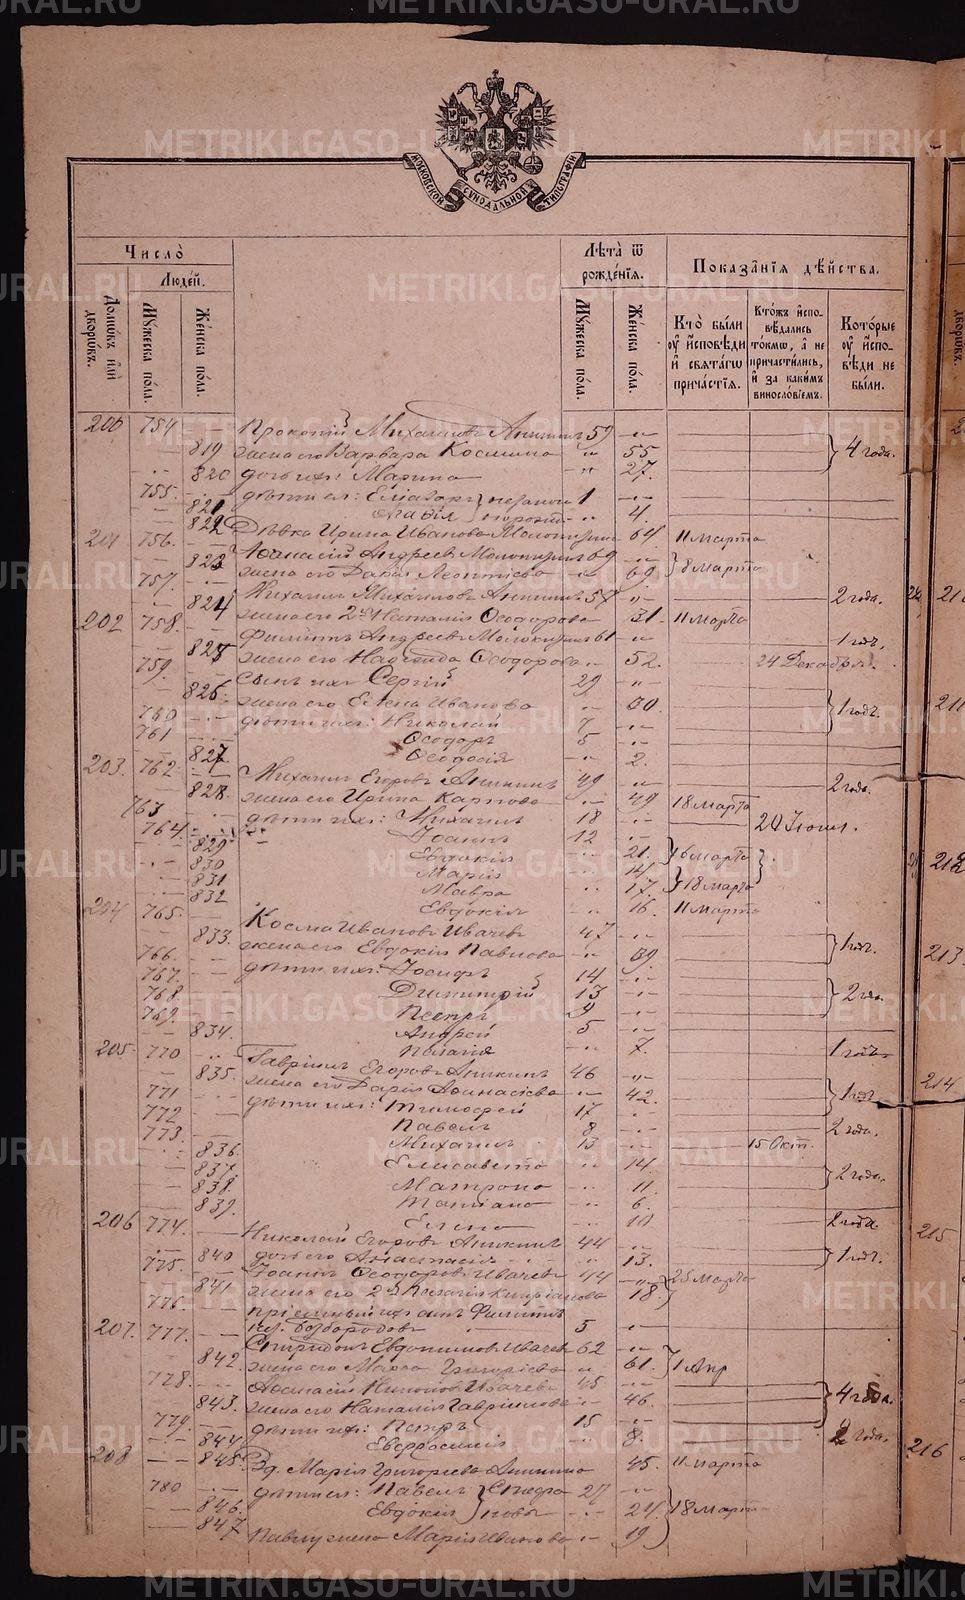 METRIKI.GASO-URAL.RU
МОСКОВСКОЙ СѴНОДАЛЬНОЙ ТИПОГРАФІИ
Число̀
Люде́й.
Домѡ́въ и҆лѝ дворѡ́въ.
Мꙋ́жеска по́ла.
Же́нска по́ла.
Лѣ́та ѿ рожде́нїѧ.
Мꙋ́жеска по́ла.
Же́нска по́ла.
Показа̑нїѧ дѣ́йства.
Кто̀ бы́ли ᲂу҆ и҆́сповѣди и҆ свѧта́гѡ прича́стїѧ.
Кто́жъ и҆сповѣ́дались то́кмѡ, а҆ не причасти́лись, и҆ за каки́мъ виносло́вїемъ.
Кото́рые ᲂу҆ и҆́сповѣди не бы́ли.
200 754 — Прокопій Михаиловъ Аникинъ 59
819 жена его Варвара Космина 55 4 года.
820 дочь ихъ Марина 27.
755. дѣти ея: Еліазаръ незакон 1
821 норожд. 4
822 Дѣвка Ирина Иванова 64 11 марта
201 756. Аѳанасій Андреевъ 69
823 жена его Дарія Леонтіева 69 8 марта
757. Михаилъ Михаиловъ Аникинъ 57 2 года.
824 жена его 2я Наталія Ѳеодорова 31. 11 марта
202 758. Филиппъ Андреевъ 61 1 годъ.
825 жена его Надежда Ѳеодорова 52. 24 Декабря.
759. сынъ ихъ Сергій 29
826. жена его Елена Иванова 30. 1 годъ.
760 дѣти ихъ: Николай 7
761 Ѳеодоръ 5
827 Ѳеодосія 2.
203. 762 Михаилъ Егоровъ Аникинъ 49 2 года.
828. жена его Ирина Карпова 49 18 марта
763 дѣти ихъ: Михаилъ 18 20 Іюня.
764. Іоаннъ 12
829 Евдокія 21. 16 марта
830 Марія 14
831 Мавра 17. 18 марта
832 Евдокія 16. 11 марта
204 765. Косма Ивановъ Ивачевъ 47
833. жена его Евдокія Павлова 39 1 год.
766. дѣти ихъ: Іосифъ 14
767. Димитрій 13 2 года.
768. Петръ 9
769. Андрей 5
834. Пелагія 7. 1 годъ.
205. 770 Гавріилъ Егоровъ Аникинъ 46
835. жена его Дарія Аѳанасіева 42. 1 год.
771 дѣти ихъ: Тимофей 17
772 Павелъ 8 2 года.
773. Михаилъ 13 15 Окт.
836. Елисавета 14.
837. Матрона 11. 2 года.
838. Татіана 6.
839. Елена 10 2 года.
206 774. Николай Егоровъ Аникинъ 44
840 дочь его Анастасія 13. 1 годъ.
775. Іоаннъ Ѳеодоровъ Ивачевъ 44 25 марта
841 жена его 2я Пелагія Кипріанова 18.
776. пріемный ихъ сынъ Филиппъ
5
207. 777. Спиридонъ Евдокимовъ Ивачев 62
842. жена его Григоріева 61. 1 Апр
778. Аѳанасій Ивачевъ 45
843. жена его Наталія Гавріилова 46. 4 года.
779. дѣти ихъ: Петръ 15
844. Евфросинія 8. 2 года.
208 845. Вд. Марія Григорьева Аникина 45. 11 марта
780 дѣти ея: Павелъ 27
846. Евдокія 24. 18 марта
847. Павлу жена Марія Иванова 19